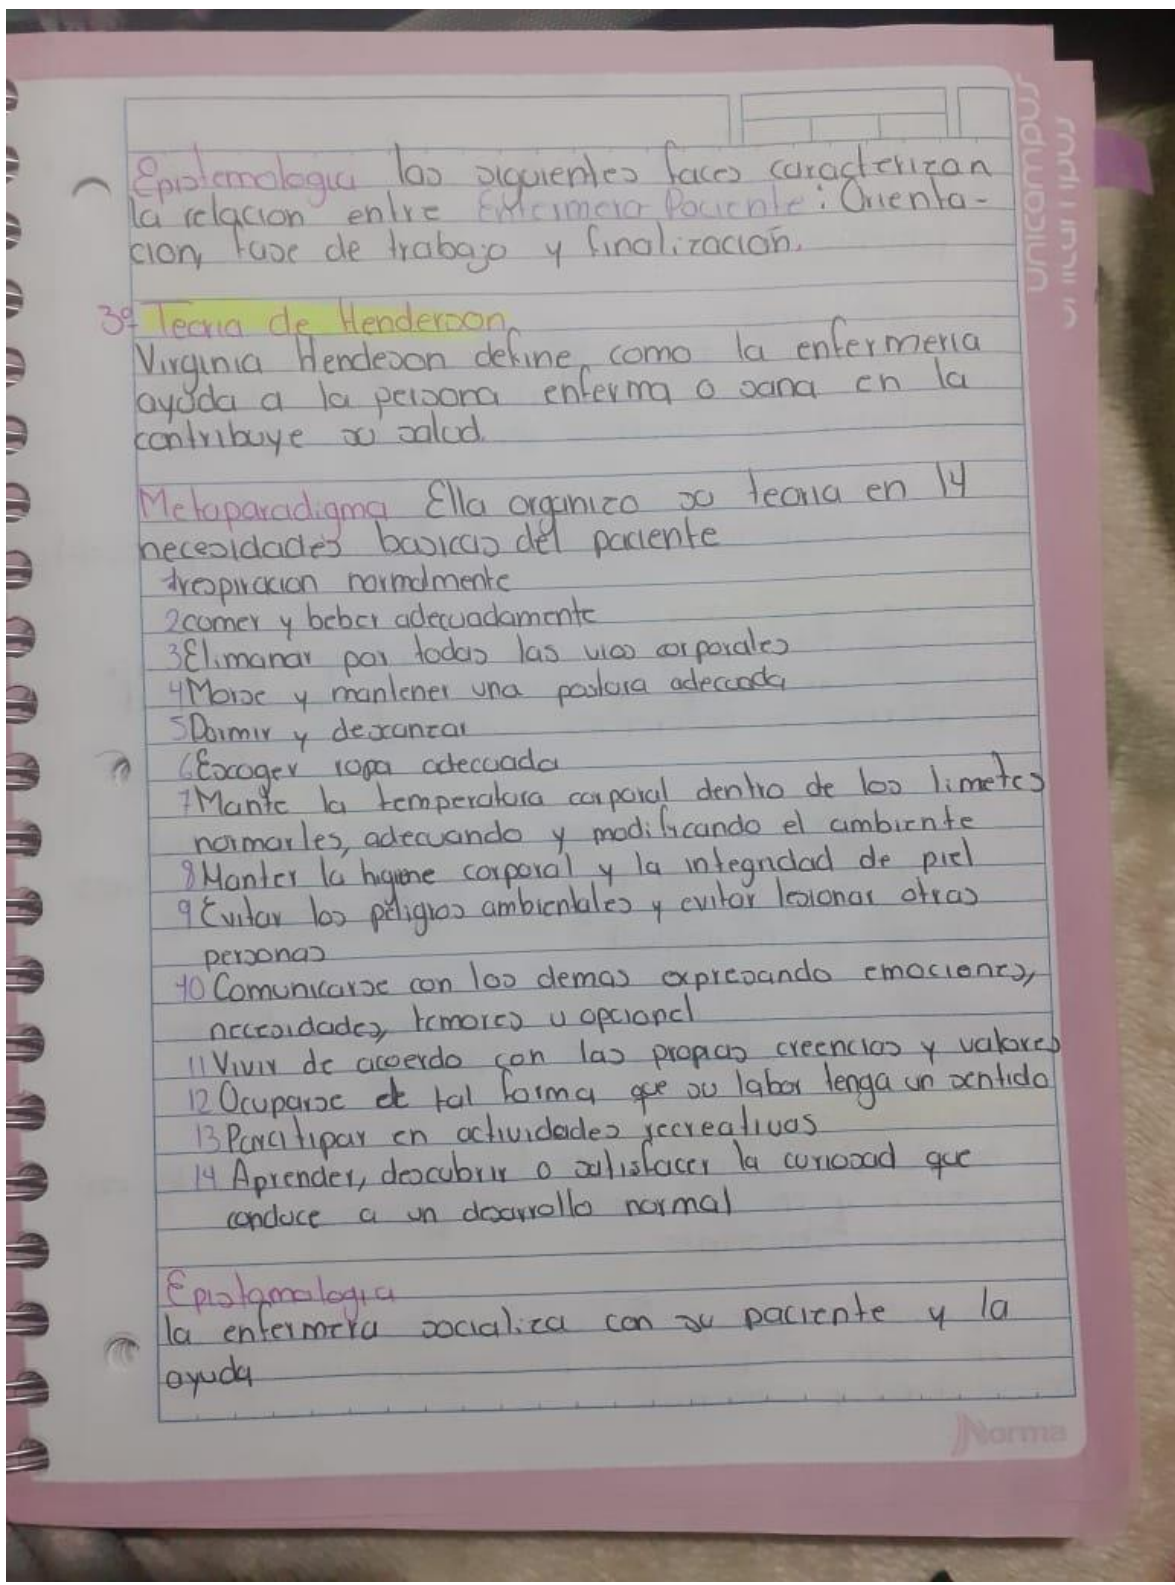 Epistemologia las siguientes faces caracterizan
la relacion entre Enfermera Paciente: Orienta-
cion, fase de trabajo y finalización.
3º Teoria de Henderson
Virginia Hendeson define como la enfermeria
ayuda a la persona enferma o sana en la
contribuye su salud.
Metaparadigma Ella organizo su teoria en 14
necesidades basicas del paciente
1respiracion normalmente
2comer y beber adecuadamente
3Elimanar por todas las vias corporales
4Morse y mantener una postura adecuada
5Dormir y descanzar
6Escoger ropa adecuada
7Mante la temperatura corporal dentro de los limetes
normarles, adecuando y modificando el ambiente
8Manter la higiene corporal y la integridad de piel
9Evitar los peligros ambientales y evitar lesionar otras
personas
10Comunicarse con los demas expresando emociones,
necesidades, temores u opcionel
11Vivir de acoerdo con las propias creencias y valores
12Ocuparse de tal forma que su labor tenga un sentido
13Parcitipar en actividades recreativas
14 Aprender, descubrir o satisfacer la curiosad que
conduce a un desarrollo normal
Epistamologia
la enfermera socializa con su paciente y la
ayuda
Norma
unicampus